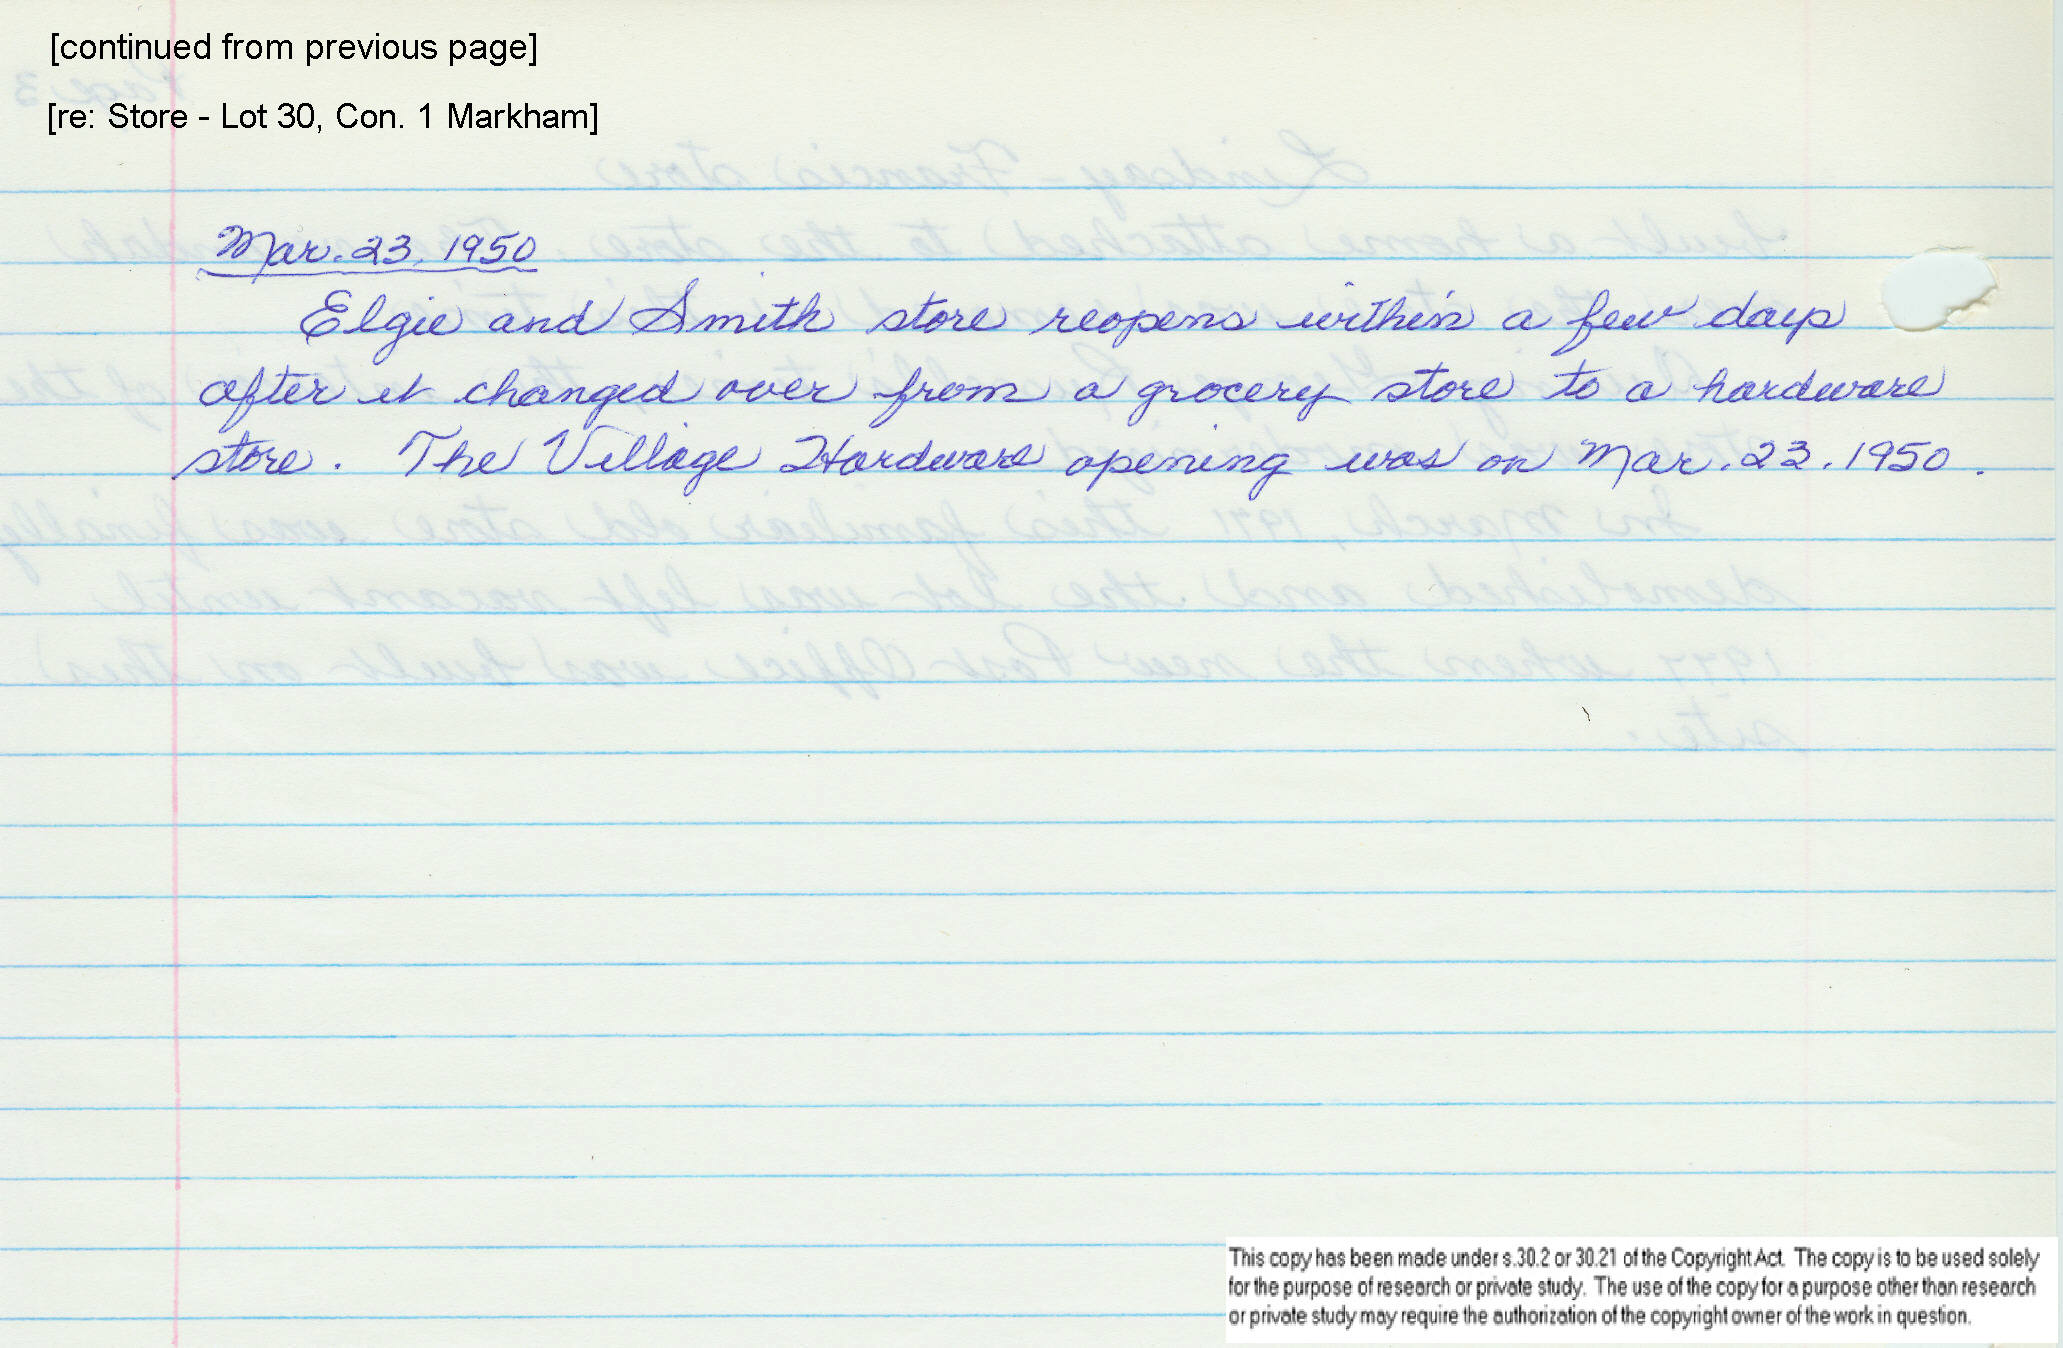 [continued from previous page]
[re: Store - Lot 30, Con. 1 Markham]
Mar. 23. 1950
Elgie and Smith store reopens within a few days
after it changed over from a grocery store to a hardware
store. The Village Hardware opening was on Mar. 23. 1950.
This copy has been made under s.30.2 or 30.21 of the Copyright Act. The copy is to be used solely
for the purpose of research or private study. The use of the copy for a purpose other than research
or private study may require the authorization of the copyright owner of the work in question.